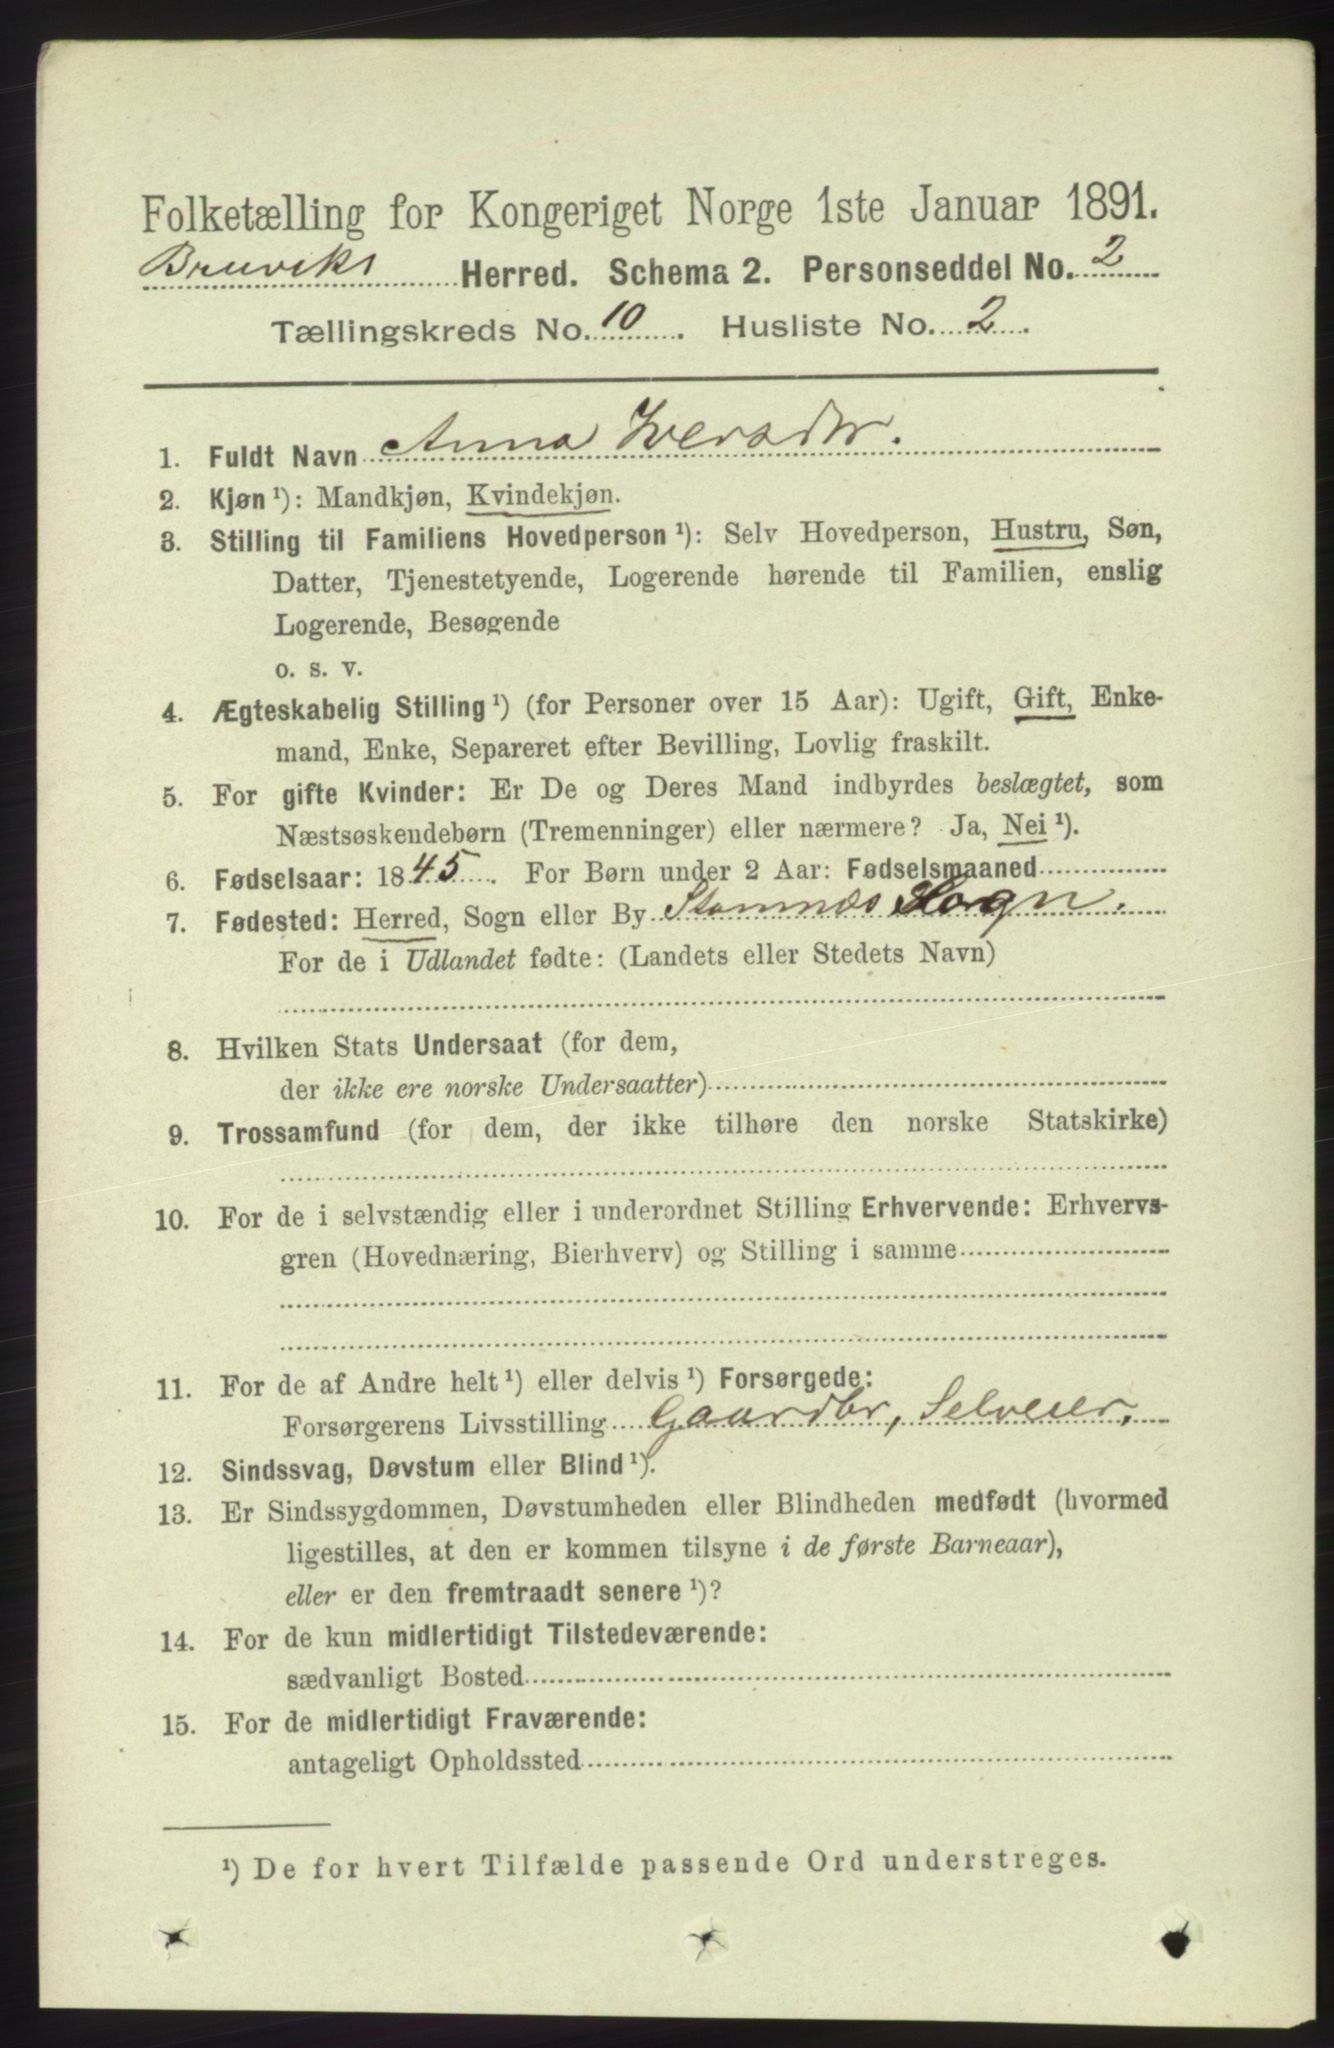 Folketælling for Kongeriget Norge 1ste Januar 1891.
Bruviks Herred. Schema 2. Personseddel No. 2
Tællingskreds No. 10. Husliste No. 2.
1. Fuldt Navn Anna Iversdtr.
2. Kjøn ¹): Mandkjøn, Kvindekjøn.
3. Stilling til Familiens Hovedperson ¹): Selv Hovedperson, Hustru, Søn,
Datter, Tjenestetyende, Logerende hørende til Familien, enslig
Logerende, Besøgende
o. s. v.
4. Ægteskabelig Stilling ¹) (for Personer over 15 Aar): Ugift, Gift, Enke-
mand, Enke, Separeret efter Bevilling, Lovlig fraskilt.
5. For gifte Kvinder: Er De og Deres Mand indbyrdes beslægtet, som
Næstsøskendebørn (Tremenninger) eller nærmere? Ja, Nei ¹).
6. Fødselsaar: 1845. For Børn under 2 Aar: Fødselsmaaned
7. Fødested: Herred, Sogn eller By Stamnæs Sogn.
For de i Udlandet fødte: (Landets eller Stedets Navn)
8. Hvilken Stats Undersaat (for dem,
der ikke ere norske Undersaatter)
9. Trossamfund (for dem, der ikke tilhøre den norske Statskirke)
10. For de i selvstændig eller i underordnet Stilling Erhvervende: Erhvervs-
gren (Hovednæring, Bierhverv) og Stilling i samme
11. For de af Andre helt ¹) eller delvis ¹) Forsørgede:
Forsørgerens Livsstilling Gaardbr, Selveier.
12. Sindssvag, Døvstum eller Blind ¹).
13. Er Sindssygdommen, Døvstumheden eller Blindheden medfødt (hvormed
ligestilles, at den er kommen tilsyne i de første Barneaar),
eller er den fremtraadt senere ¹)?
14. For de kun midlertidigt Tilstedeværende:
sædvanligt Bosted
15. For de midlertidigt Fraværende:
antageligt Opholdssted
¹) De for hvert Tilfælde passende Ord understreges.